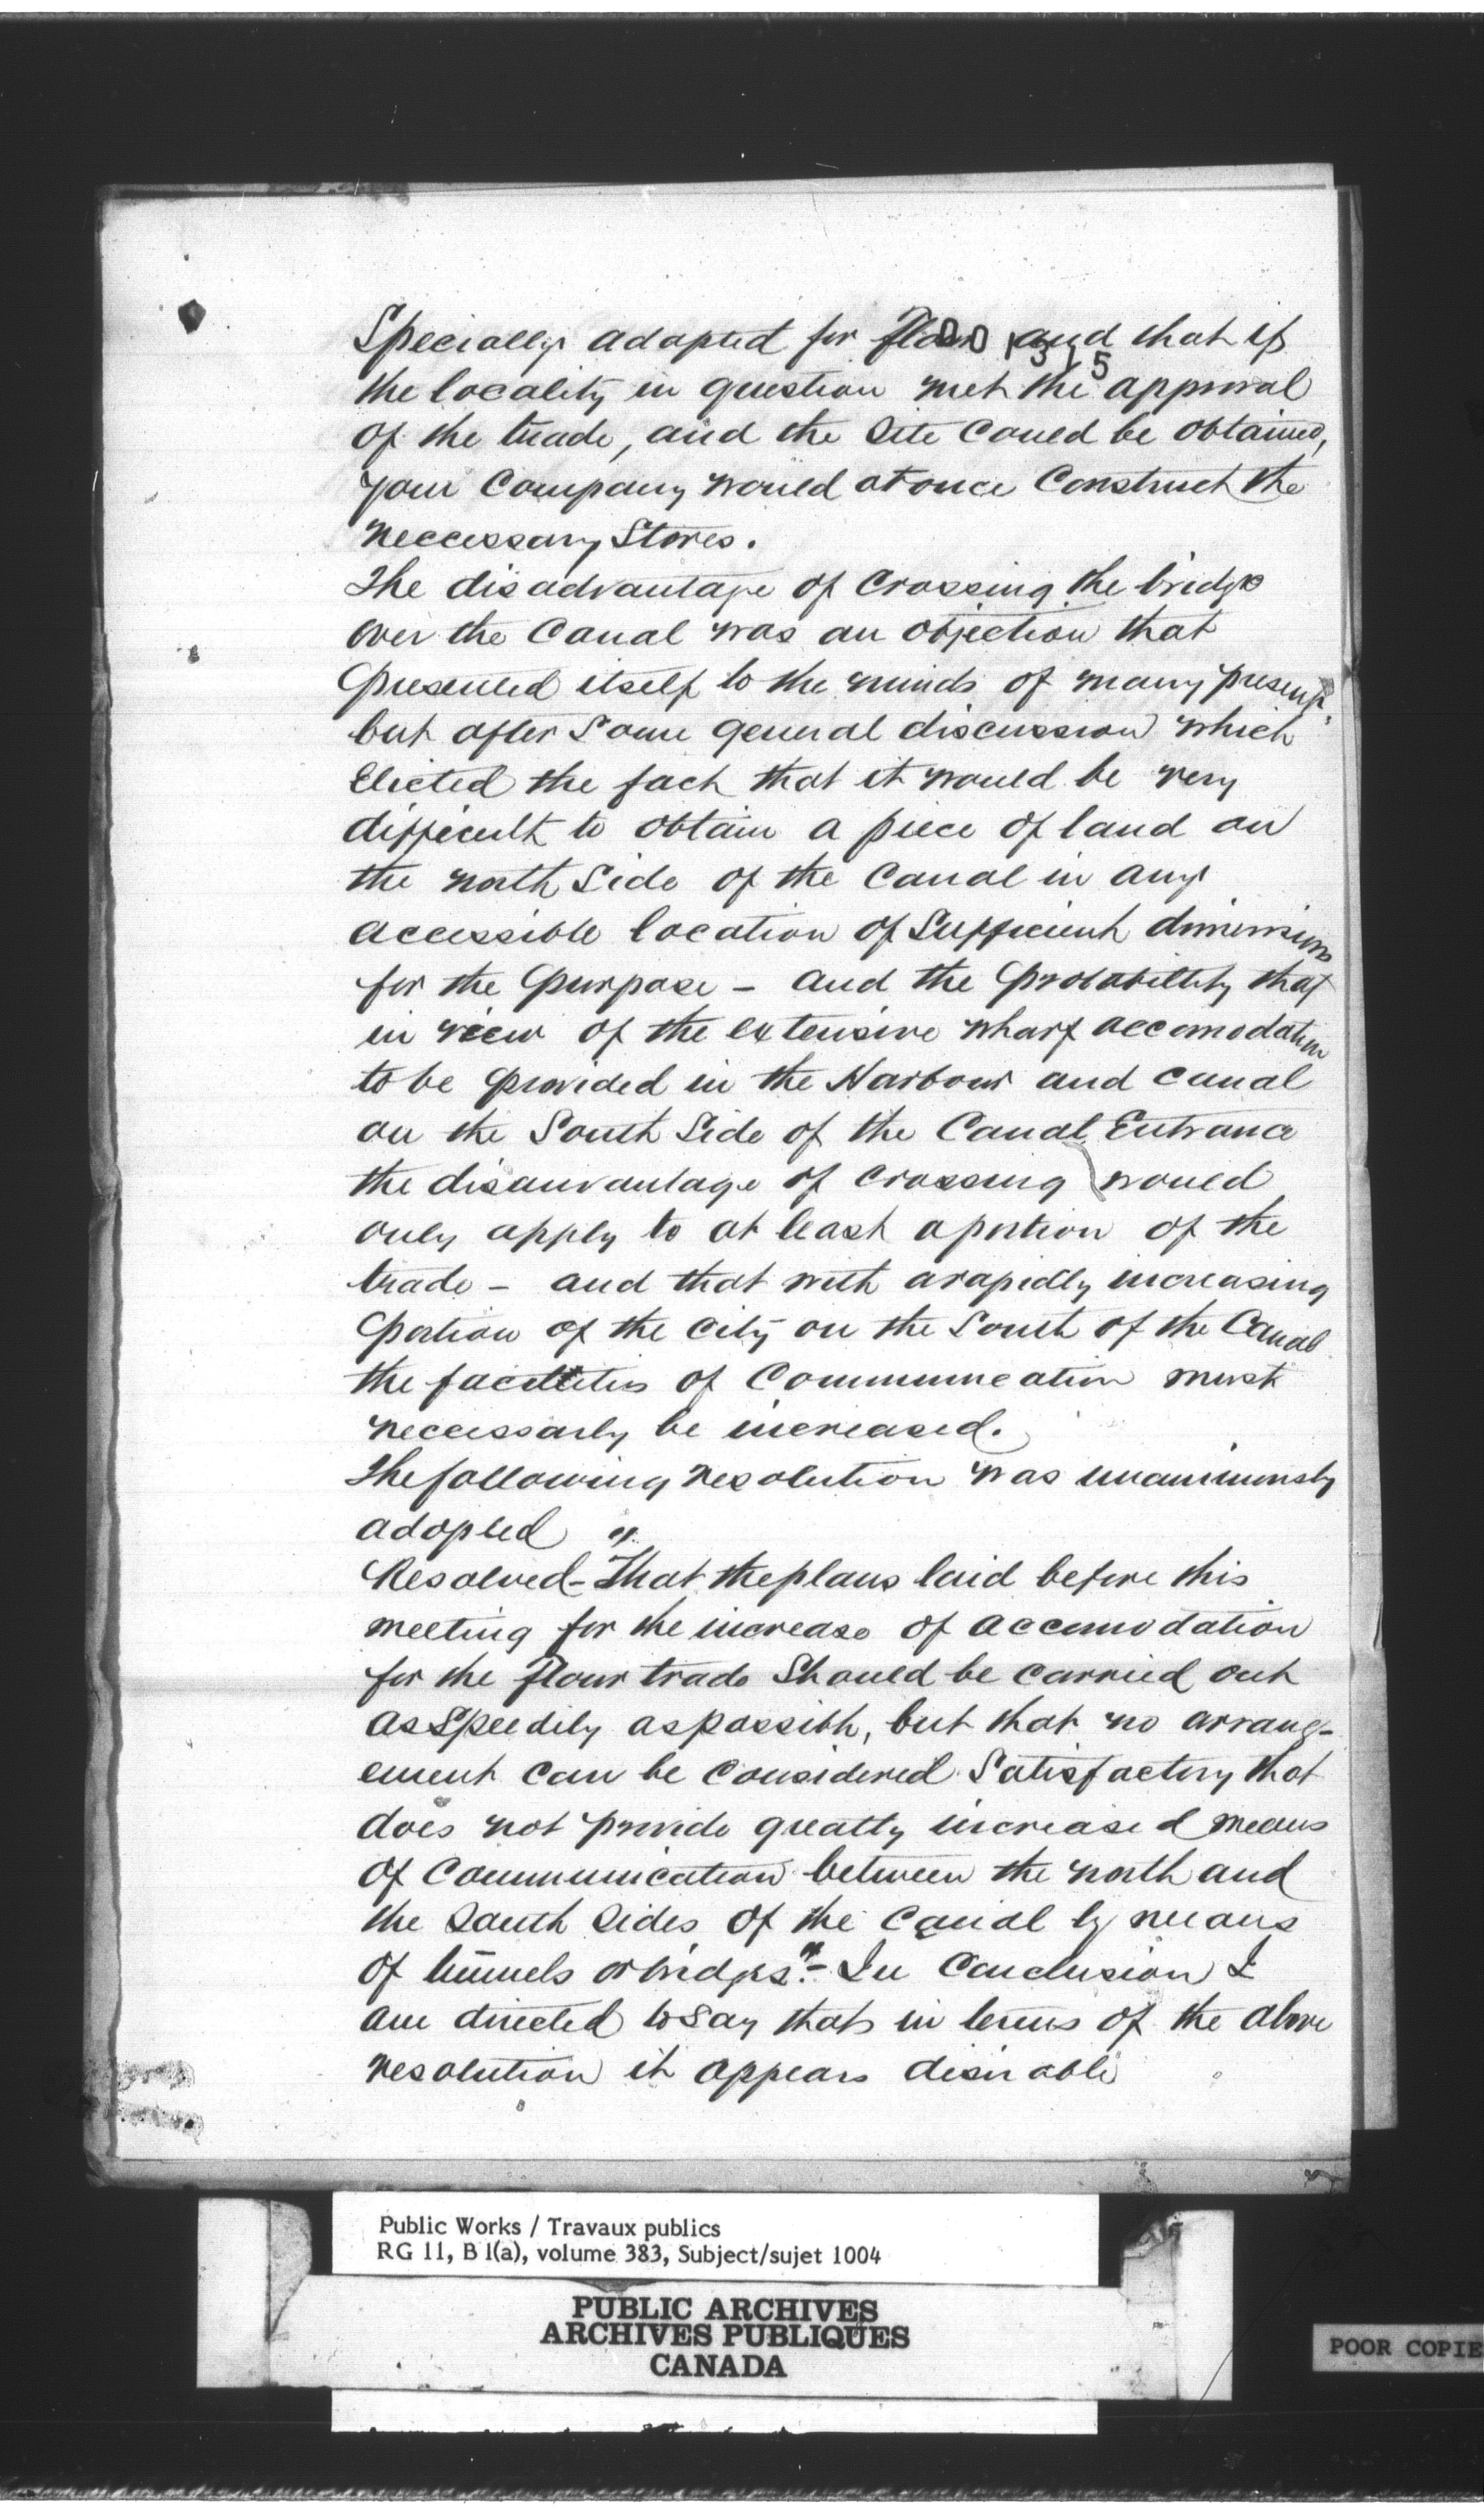 Specially adapted for flour and that if
001315
the locality in question met the approval
of the trade, and the site could be obtained,
your Company would at once Construct the
neccessary Stores.
The disadvantage of Crossing the bridge
over the Canal was an objection that
presented itself to the minds of many present,
but after some general discussion which
Elicted the fact that it would be very
difficult to obtain a piece of land on
the north Side of the Canal in any
accessible location of Sufficient dimensions
for the purpose - and the probabillity that
in view of the extensive wharf accomodation
to be provided in the Harbour and canal
on the South Side of the Canal Entrance
the disauvantage of crossing would
only apply to at least a portion of the
trade - and that with a rapidly increasing
portion of the city on the South of the Canal
the facilities of Communication must
neccessarly be increased.
The following resolution was unanimously
adopted "
Resolved - That the plans laid before this
meeting for the increase of accomodation
for the flour trade Should be carried out
as Speedily as possible, but that no arrang-
ement can be considered Satisfactory that
does not provide greatly increased means
of Communication between the north and
the South sides of the Canal by means
of tunnels or bridges." - In Conclusion I
am directed to say that in terms of the above
resolution it appears desirable
Public Works / Travaux publics
RG 11, B 1(a), volume 383, Subject/sujet 1004
PUBLIC ARCHIVES
ARCHIVES PUBLIQUES
CANADA
POOR COPIE